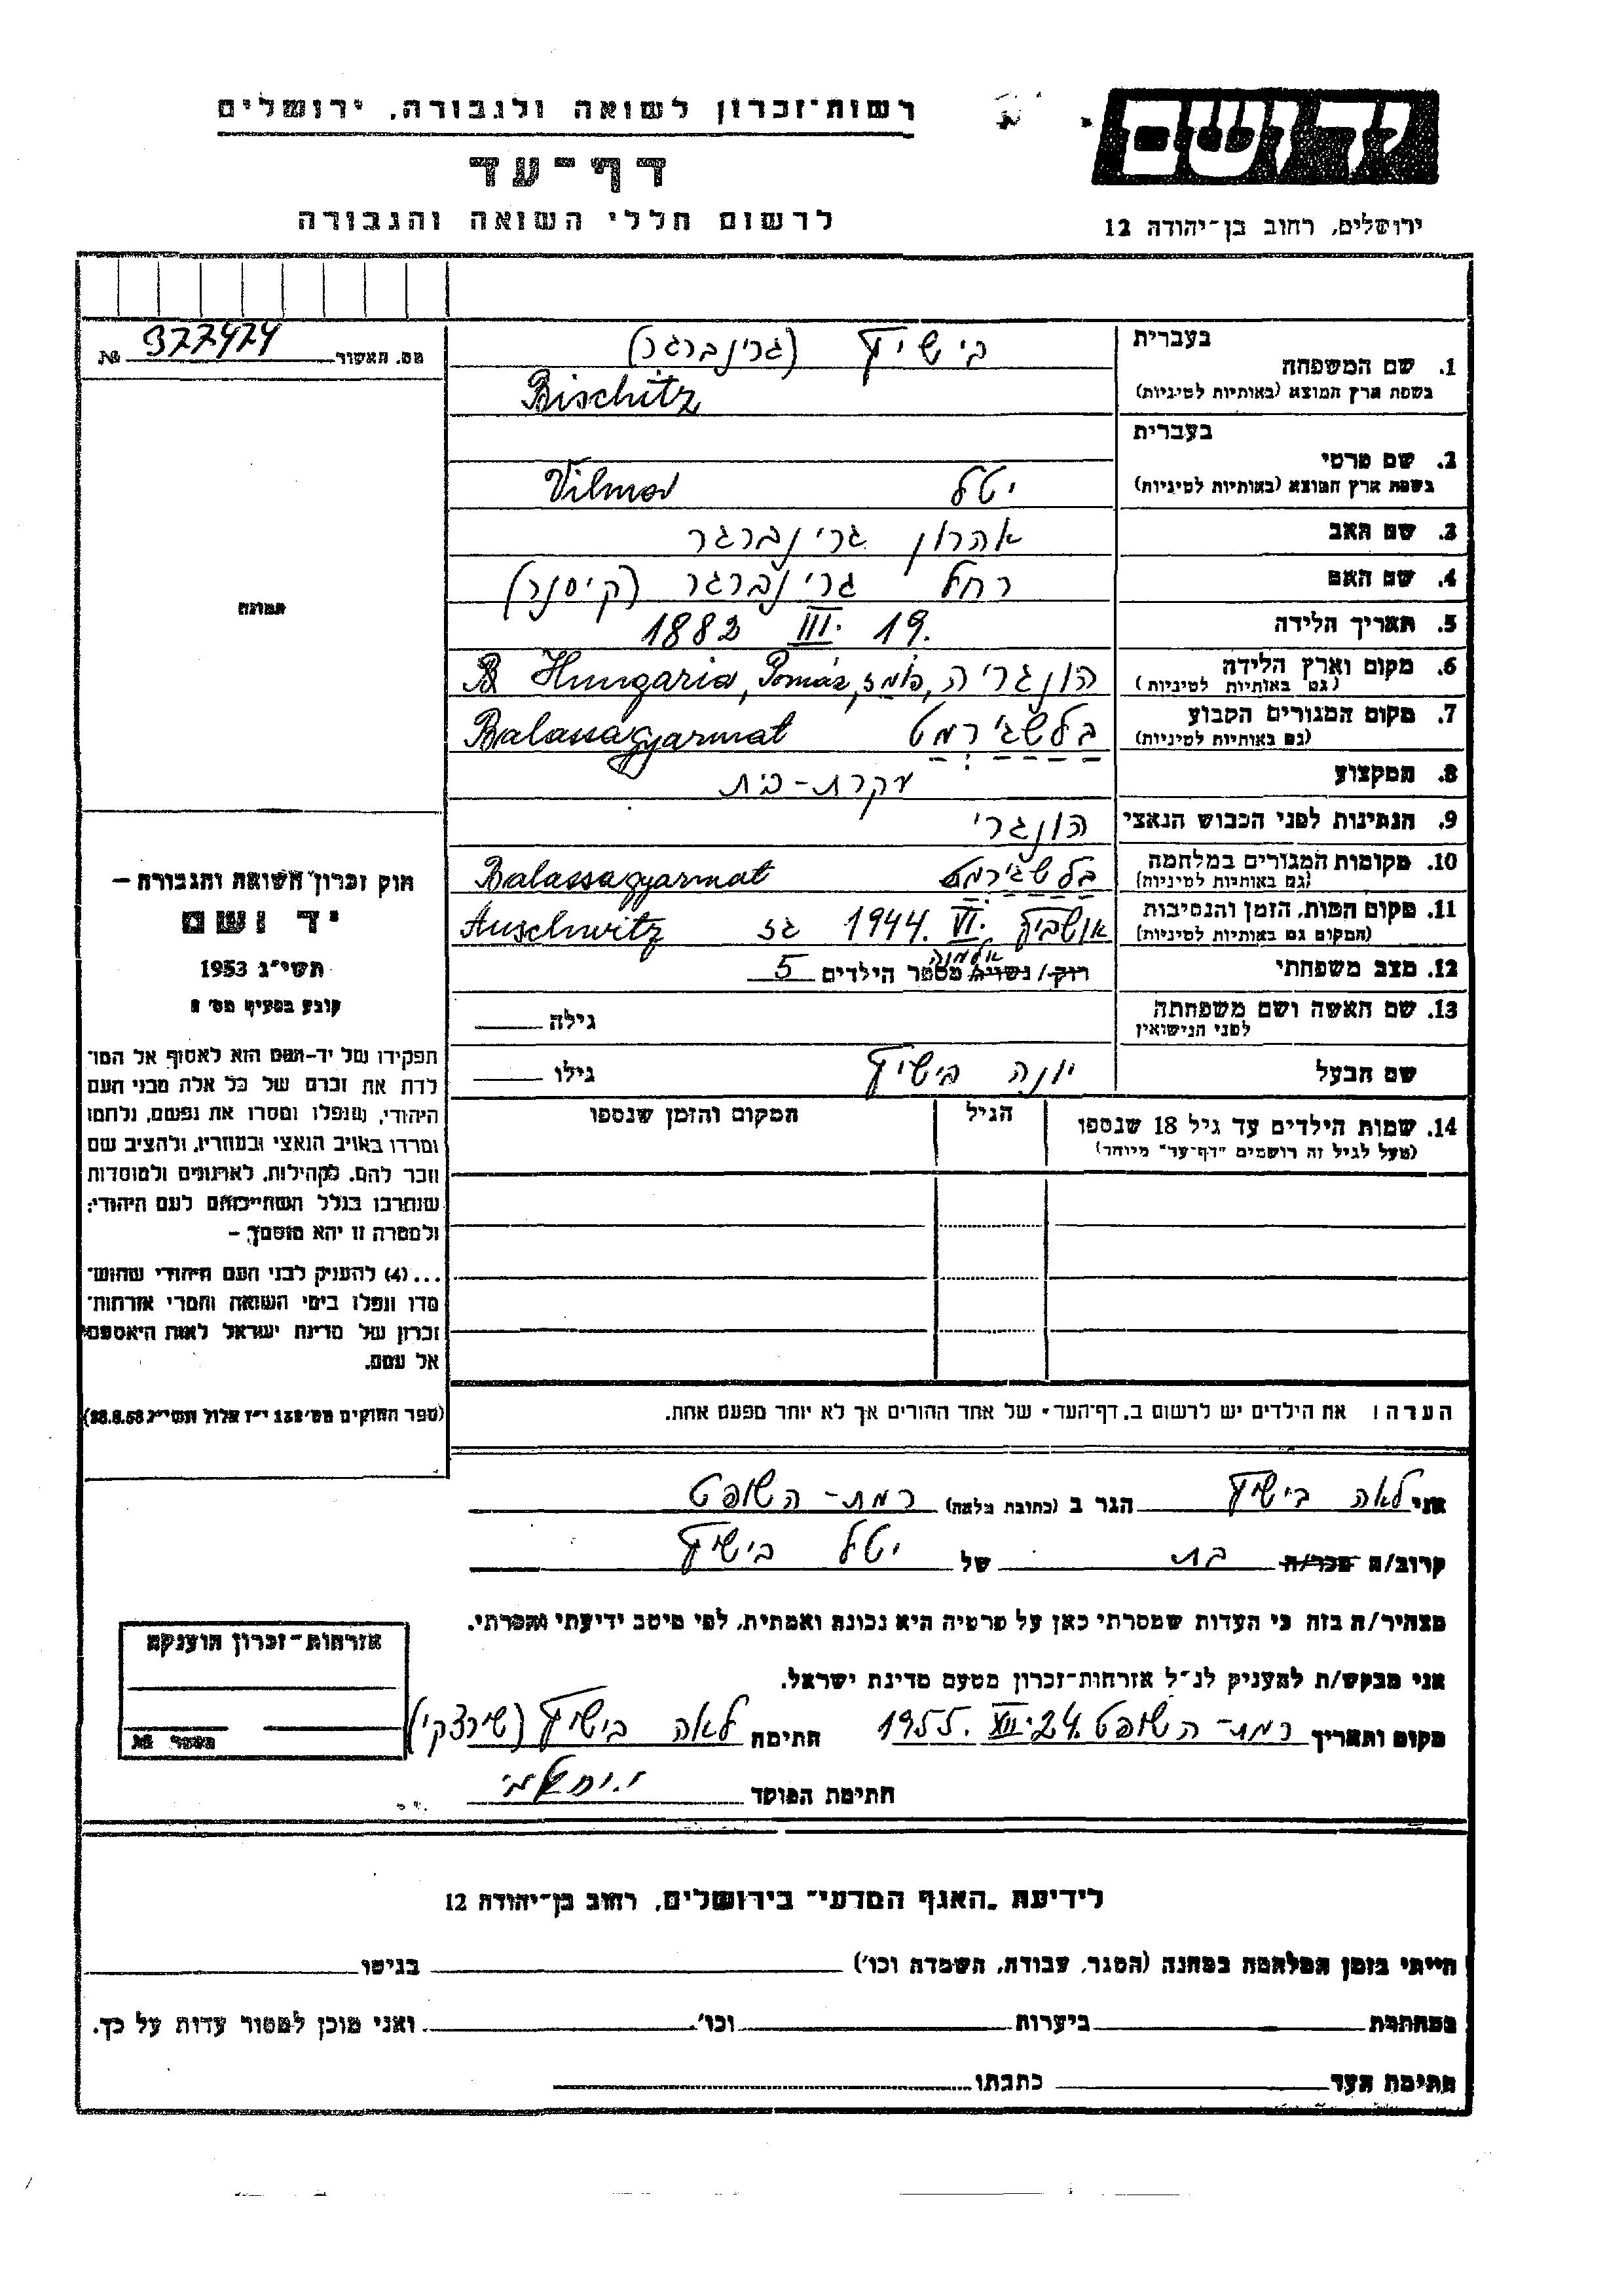 רשות־זכרון לשואה ולגבורה, ירושלים
יד ושם
דף־עד
לרשום חללי השואה והגבורה
ירושלים, רחוב בן־יהודה 12
מס. האשור 377474 №
1. שם המשפחה
בעברית בישיץ (גרינברגר)
בשפת ארץ המוצא (באותיות לטיניות) Bischitz
2. שם פרטי
בעברית
בשפת ארץ המוצא (באותיות לטיניות) יטל Vilma
3. שם האב אהרון גרינברגר
4. שם האם רחל גרינברגר (קיסנר)
5. תאריך הלידה 19. III. 1882
6. מקום וארץ הלידה
(גם באותיות לטיניות) הונגריה, פומז, Hungaria, Pomáz
7. מקום המגורים הקבוע
(גם באותיות לטיניות) בלשגירמט Balassagyarmat
8. המקצוע עקרת-בית
9. הנתינות לפני הכבוש הנאצי הונגרי
10. מקומות המגורים במלחמה
(גם באותיות לטיניות) בלשגירמט Balassagyarmat
11. מקום המות, הזמן והנסיבות
(המקום גם באותיות לטיניות) אושביץ VI. 1944. גז Auschwitz
12. מצב משפחתי רוק/נשוי/ה אלמנה מספר הילדים 5
13. שם האשה ושם משפחתה
לפני הנישואין גילה
שם הבעל יונה בישיץ גילו
14. שמות הילדים עד גיל 18 שנספו
(מעל לגיל זה רושמים "דף־עד" מיוחד)
הגיל
המקום והזמן שנספו
הערה: את הילדים יש לרשום ב„דף־העד" של אחד ההורים אך לא יותר מפעם אחת.
תמונה
חוק זכרון השואה והגבורה –
יד ושם
תשי"ג 1953
קובע בסעיף מס' 2
תפקידו של יד-ושם הוא לאסוף אל המו־
לדת את זכרם של כל אלה מבני העם
היהודי, שנפלו ומסרו את נפשם, נלחמו
ומרדו באויב הנאצי ובעוזריו, ולהציב שם
וזכר להם, לקהילות, לארגונים ולמוסדות
שנחרבו בגלל השתייכותם לעם היהודי;
ולמטרה זו יהא מוסמך –
...(4) להעניק לבני העם היהודי שהוש־
מדו ונפלו בימי השואה והמרי אזרחות־
זכרון של מדינת ישראל לאות היאספם
אל עמם.
(ספר החוקים מס' 132 י"ז אלול תשי"ג 28.8.53)
אני לאה בישיץ הגר ב (כתובת מלאה) רמת-השופט
קרוב/ה מכר/ה בת של יטל בישיץ
מצהיר/ה בזה כי העדות שמסרתי כאן על פרטיה היא נכונה ואמתית, לפי מיטב ידיעתי והכרתי.
אני מבקש/ת להעניק לנ"ל אזרחות־זכרון מטעם מדינת ישראל.
מקום ותאריך רמת-השופט 24. XII. 1955. חתימה לאה בישיץ (שירצקי)
חתימת הפוקד
אזרחות־זכרון הוענקה
מספר №
לידיעת „האגף המדעי" בירושלים, רחוב בן־יהודה 12
הייתי בזמן המלחמה במחנה (הסגר, עבודה, השמדה וכו') בגיטו
במחתרת ביערות וכו'. ואני מוכן למסור עדות על כך.
חתימת העד כתבתו